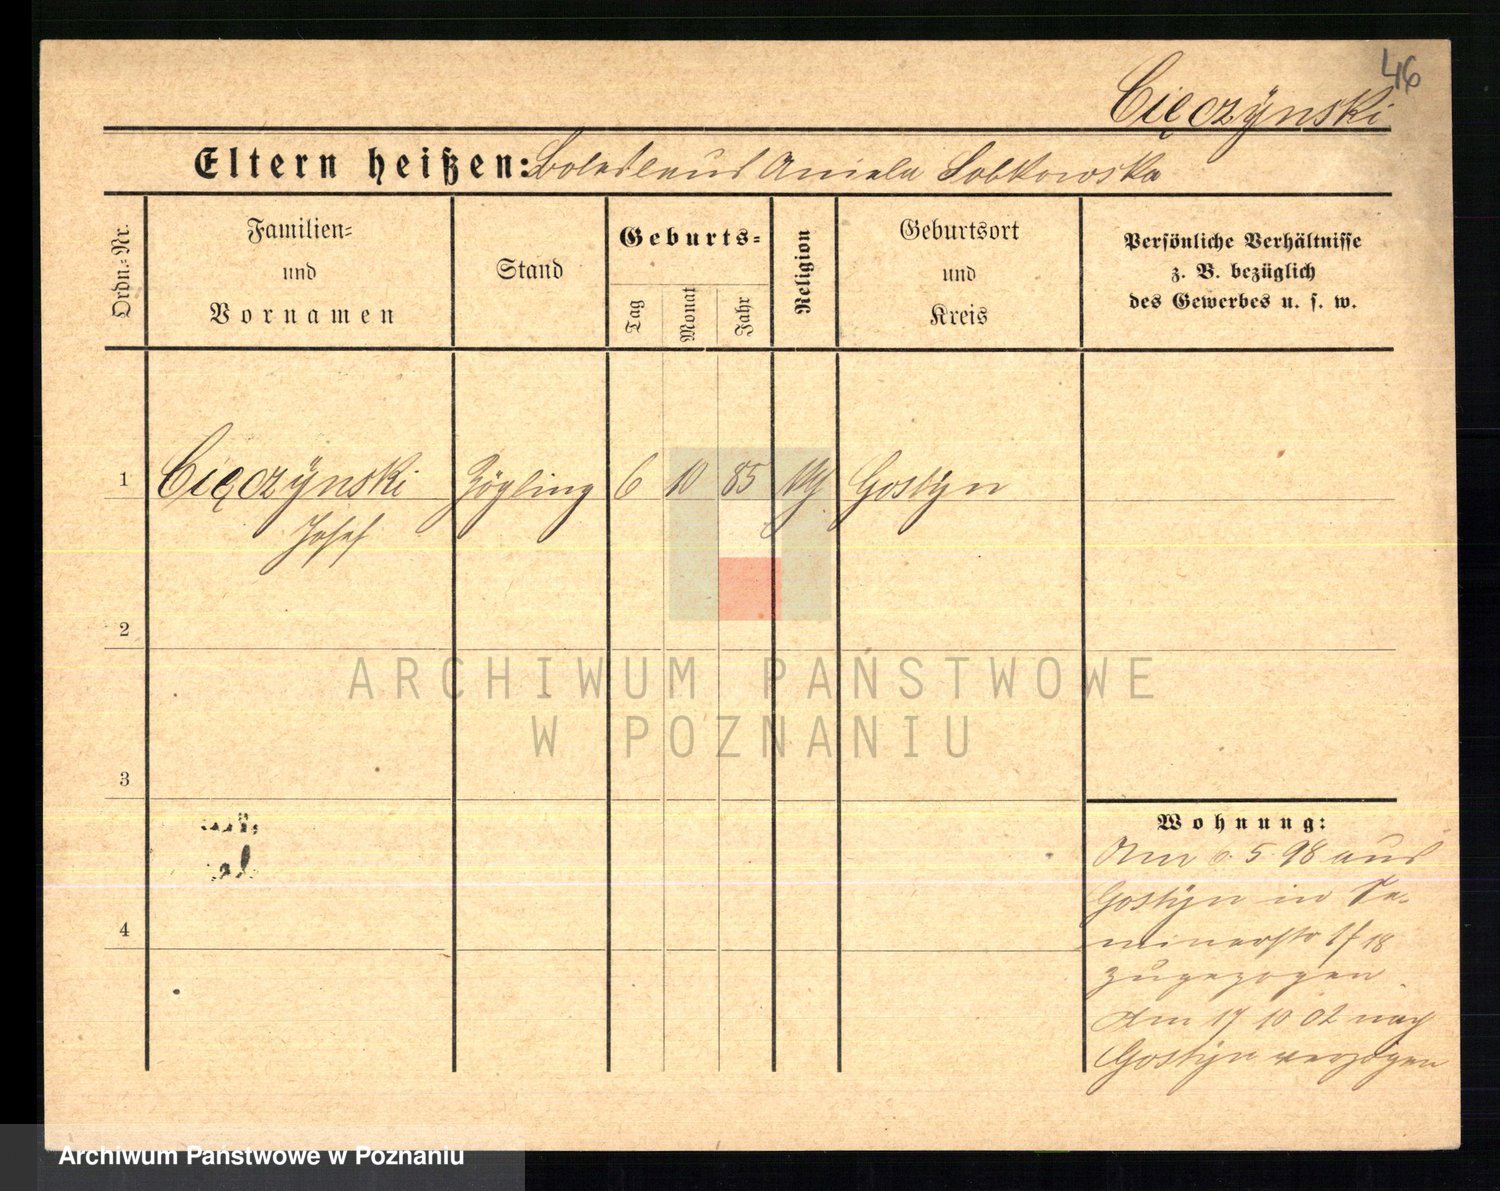 46
Cięczÿnski
Eltern heißen: Boleslaus Aniela Sobkowska
Ordn.-Nr.
Familien-
und
Vornamen
Stand
Geburts-
Tag
Monat
Jahr
Religion
Geburtsort
und
Kreis
Persönliche Verhältnisse
z. B. bezüglich
des Gewerbes u. s. w.
1 Cięczÿnski Zögling 6 10 85 Gostÿn
Josef
2
3
4
Wohnung:
Am 6. 5 98 aus
Gostÿn in Se-
minarstr 1/18
zugezogen
Am 17 10 02 nach
Gostÿn verzogen
ARCHIWUM PAŃSTWOWE
W POZNANIU
Archiwum Państwowe w Poznaniu